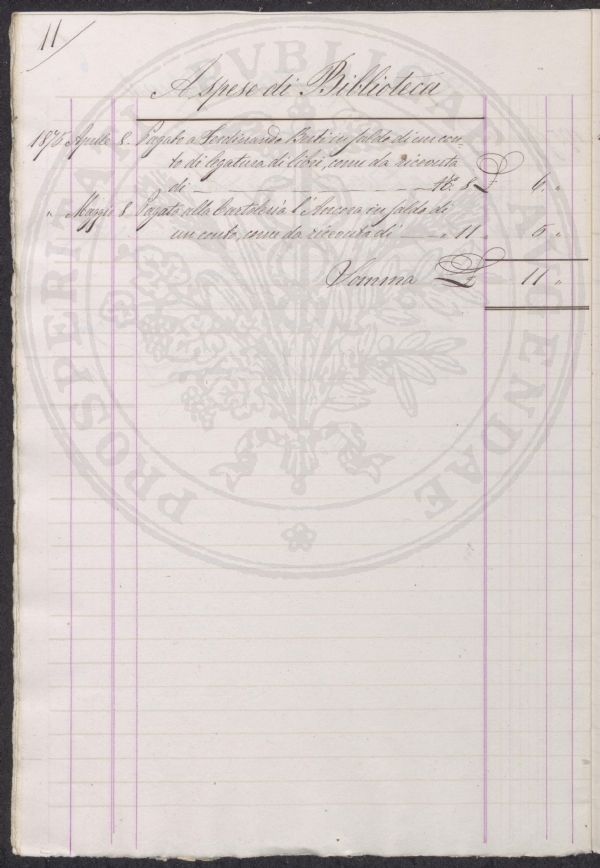 11
A spese di Biblioteca
1875 Aprile 8. Pagato a Ferdinando Berti in saldo di un con-
to di legatura di libri, come da ricevuta
di — N.º 8 £ 6 "
" Maggio 8. Pagato alla Cartoleria l'Ancora in saldo di
un conto, come da ricevuta di — " 11 " 5 "
Somma £ 11 "
PROSPERITATI PUBLICAE AUGENDAE